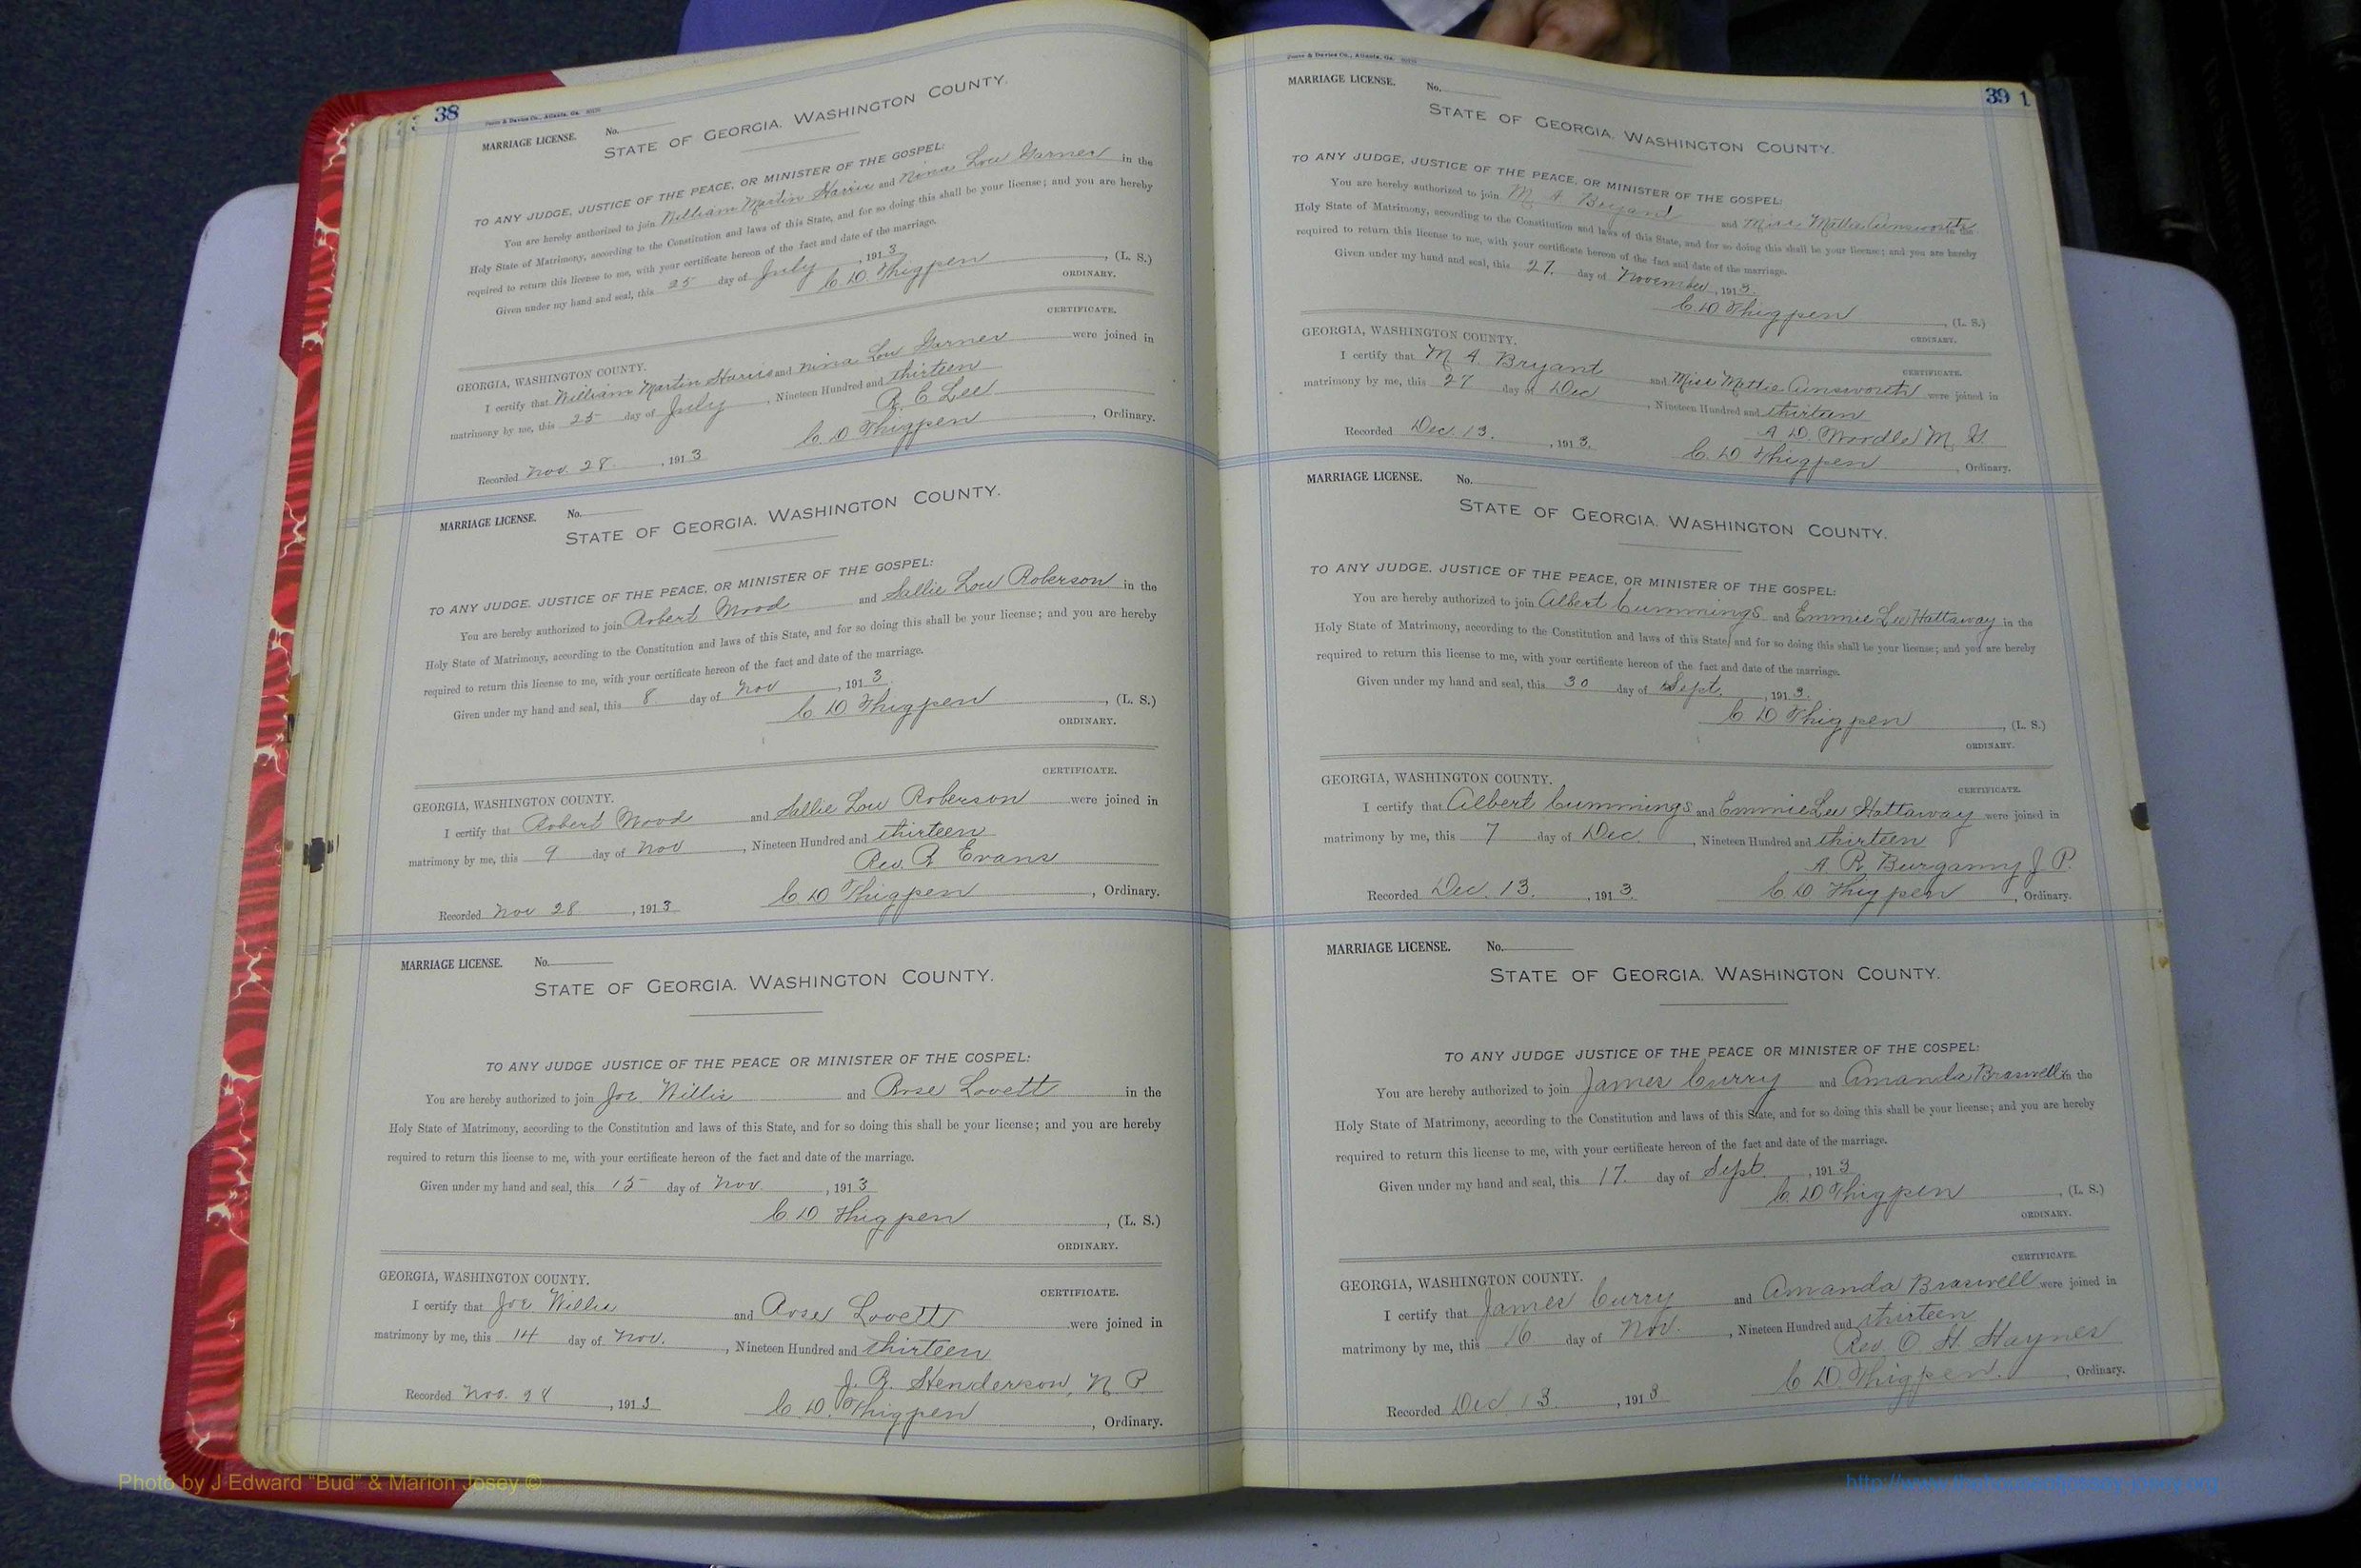 38
MARRIAGE LICENSE. No.
STATE OF GEORGIA, WASHINGTON COUNTY.
TO ANY JUDGE, JUSTICE OF THE PEACE, OR MINISTER OF THE GOSPEL:
You are hereby authorized to join William Martin Harris and Nina Lou Garner in the
Holy State of Matrimony, according to the Constitution and laws of this State, and for so doing this shall be your license; and you are hereby
required to return this license to me, with your certificate hereon of the fact and date of the marriage.
Given under my hand and seal, this 25 day of July, 1913
C. D. Thigpen, (L. S.)
ORDINARY.
CERTIFICATE.
GEORGIA, WASHINGTON COUNTY.
I certify that William Martin Harris and Nina Lou Garner were joined in
matrimony by me, this 25 day of July, Nineteen Hundred and thirteen
R. C. Lee
Recorded Nov. 28., 1913 C. D. Thigpen, Ordinary.
MARRIAGE LICENSE. No.
STATE OF GEORGIA, WASHINGTON COUNTY.
TO ANY JUDGE, JUSTICE OF THE PEACE, OR MINISTER OF THE GOSPEL:
You are hereby authorized to join Robert Wood and Sallie Lou Roberson in the
Holy State of Matrimony, according to the Constitution and laws of this State, and for so doing this shall be your license; and you are hereby
required to return this license to me, with your certificate hereon of the fact and date of the marriage.
Given under my hand and seal, this 8 day of Nov, 1913
C. D. Thigpen, (L. S.)
ORDINARY.
CERTIFICATE.
GEORGIA, WASHINGTON COUNTY.
I certify that Robert Wood and Sallie Lou Roberson were joined in
matrimony by me, this 9 day of Nov, Nineteen Hundred and thirteen
Rev. R. Evans
Recorded Nov 28, 1913 C. D. Thigpen, Ordinary.
MARRIAGE LICENSE. No.
STATE OF GEORGIA, WASHINGTON COUNTY.
TO ANY JUDGE JUSTICE OF THE PEACE OR MINISTER OF THE GOSPEL:
You are hereby authorized to join Joe Willis and Rose Lovett in the
Holy State of Matrimony, according to the Constitution and laws of this State, and for so doing this shall be your license; and you are hereby
required to return this license to me, with your certificate hereon of the fact and date of the marriage.
Given under my hand and seal, this 15 day of Nov., 1913
C. D. Thigpen, (L. S.)
ORDINARY.
GEORGIA, WASHINGTON COUNTY.
CERTIFICATE.
I certify that Joe Willis and Rose Lovett were joined in
matrimony by me, this 14 day of Nov., Nineteen Hundred and thirteen
Henderson, N. P.
Recorded Nov. 28, 1913 C. D. Thigpen, Ordinary.
39 1
MARRIAGE LICENSE. No.
STATE OF GEORGIA, WASHINGTON COUNTY.
TO ANY JUDGE, JUSTICE OF THE PEACE, OR MINISTER OF THE GOSPEL:
You are hereby authorized to join M. A. Bryant and Miss Mattie Ainsworth in the
Holy State of Matrimony, according to the Constitution and laws of this State, and for so doing this shall be your license; and you are hereby
required to return this license to me, with your certificate hereon of the fact and date of the marriage.
Given under my hand and seal, this 27. day of November, 1913.
C. D. Thigpen, (L. S.)
ORDINARY.
GEORGIA, WASHINGTON COUNTY.
CERTIFICATE.
I certify that M. A. Bryant and Miss Mattie Ainsworth were joined in
matrimony by me, this 27 day of Dec, Nineteen Hundred and thirteen
A. D. Wordle M. G.
Recorded Dec. 13., 1913. C. D. Thigpen, Ordinary.
MARRIAGE LICENSE. No.
STATE OF GEORGIA, WASHINGTON COUNTY.
TO ANY JUDGE, JUSTICE OF THE PEACE, OR MINISTER OF THE GOSPEL:
You are hereby authorized to join Albert Cummings and Emmie Lee Hattaway in the
Holy State of Matrimony, according to the Constitution and laws of this State, and for so doing this shall be your license; and you are hereby
required to return this license to me, with your certificate hereon of the fact and date of the marriage.
Given under my hand and seal, this 30 day of Sept., 1913.
C. D. Thigpen, (L. S.)
ORDINARY.
GEORGIA, WASHINGTON COUNTY.
CERTIFICATE.
I certify that Albert Cummings and Emmie Lee Hattaway were joined in
matrimony by me, this 7 day of Dec., Nineteen Hundred and thirteen
A. R. Burgamy J. P.
Recorded Dec. 13., 1913. C. D. Thigpen, Ordinary.
MARRIAGE LICENSE. No.
STATE OF GEORGIA, WASHINGTON COUNTY.
TO ANY JUDGE JUSTICE OF THE PEACE OR MINISTER OF THE GOSPEL:
You are hereby authorized to join James Curry and Amanda Braswell in the
Holy State of Matrimony, according to the Constitution and laws of this State, and for so doing this shall be your license; and you are hereby
required to return this license to me, with your certificate hereon of the fact and date of the marriage.
Given under my hand and seal, this 17. day of Sept., 1913
C. D. Thigpen, (L. S.)
ORDINARY.
CERTIFICATE.
GEORGIA, WASHINGTON COUNTY.
I certify that James Curry and Amanda Braswell were joined in
matrimony by me, this 16 day of Nov., Nineteen Hundred and thirteen
Rev. O. H. Haynes
Recorded Dec. 13., 1913 C. D. Thigpen., Ordinary.
Photo by J Edward "Bud" & Marion Josey ©